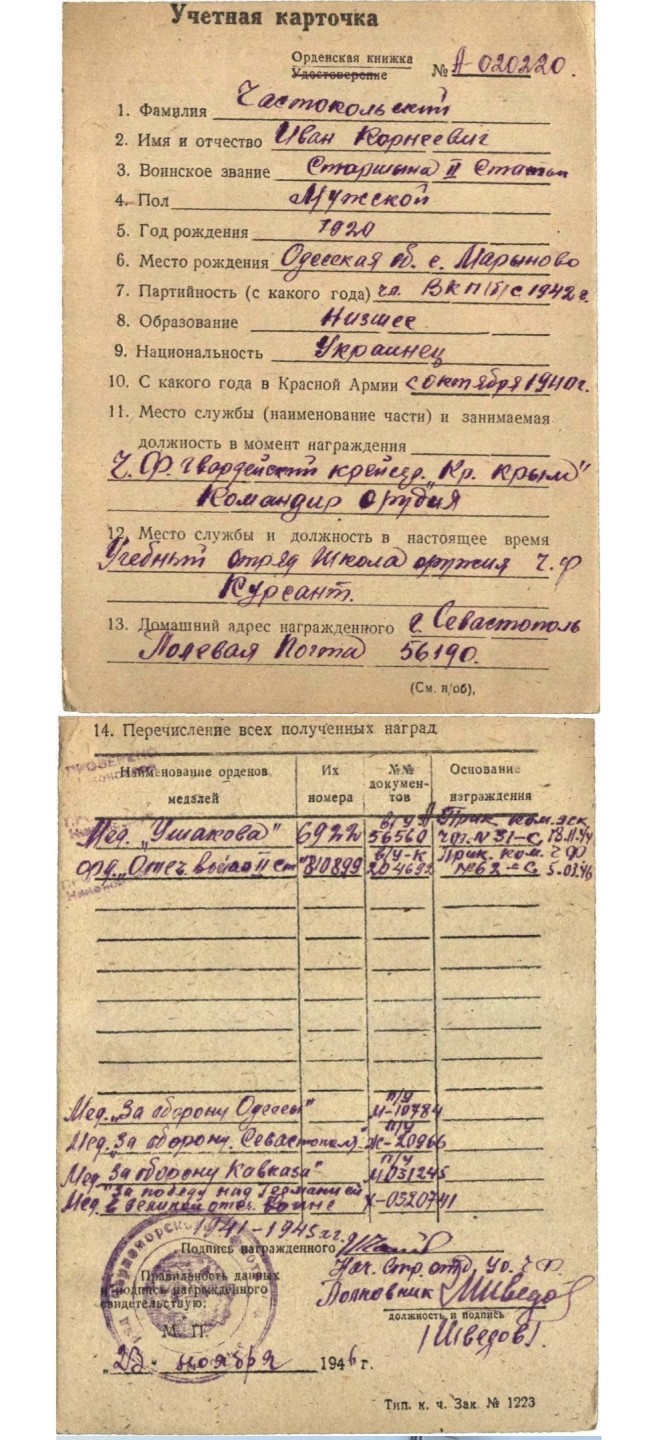 Учетная карточка
Орденская книжка
Удостоверение № А-020220.
1. Фамилия Частокольский
2. Имя и отчество Иван Корнеевич
3. Воинское звание Старшина II Статьи
4. Пол Мужской
5. Год рождения 1920
6. Место рождения Одесская об. с. Марыново
7. Партийность (с какого года) чл. ВКП/б/ с 1942 г.
8. Образование Низшее
9. Национальность Украинец
10. С какого года в Красной Армии с октября 1940 г.
11. Место службы (наименование части) и занимаемая
должность в момент награждения
Ч.Ф. гвардейский крейсер „Кр. Крым"
Командир орудия
12. Место службы и должность в настоящее время
Учебный отряд Школа оружия Ч.Ф
Курсант.
13. Домашний адрес награжденного г. Севастополь
Полевая Почта 56190.
(См. н/об),
14. Перечисление всех полученных наград
ПРОВЕРЕНО
Наименование орденов Их №№ Основание
медалей номера докумен- награждения
тов
Мед. „Ушакова" 6922 56560 Прик. ком. эск. ЧФ. №31-С, 18.11.44
Орд. „Отеч. войны II ст" 810899 в/у-к 204692 Прик. ком. ЧФ №62-С 5.03.46
Мед. „За оборону Одессы" п/у М-10784
Мед. „За оборону Севастополя" п/у Ж-20966
Мед. „За оборону Кавказа" п/у М031245
Мед. „За победу над Германией Х-0320741
в великой отеч. войне
1941-1945 гг."
Подпись награжденного
Нач. Стр. отд. УО. Ч.Ф.
Правильность данных
и подпись награжденного Полковник Шведов
свидетельствую: должность и подпись
М. П. /Шведов/.
„22" ноября 1946 г.
Тип. к. ч. Зак. № 1223